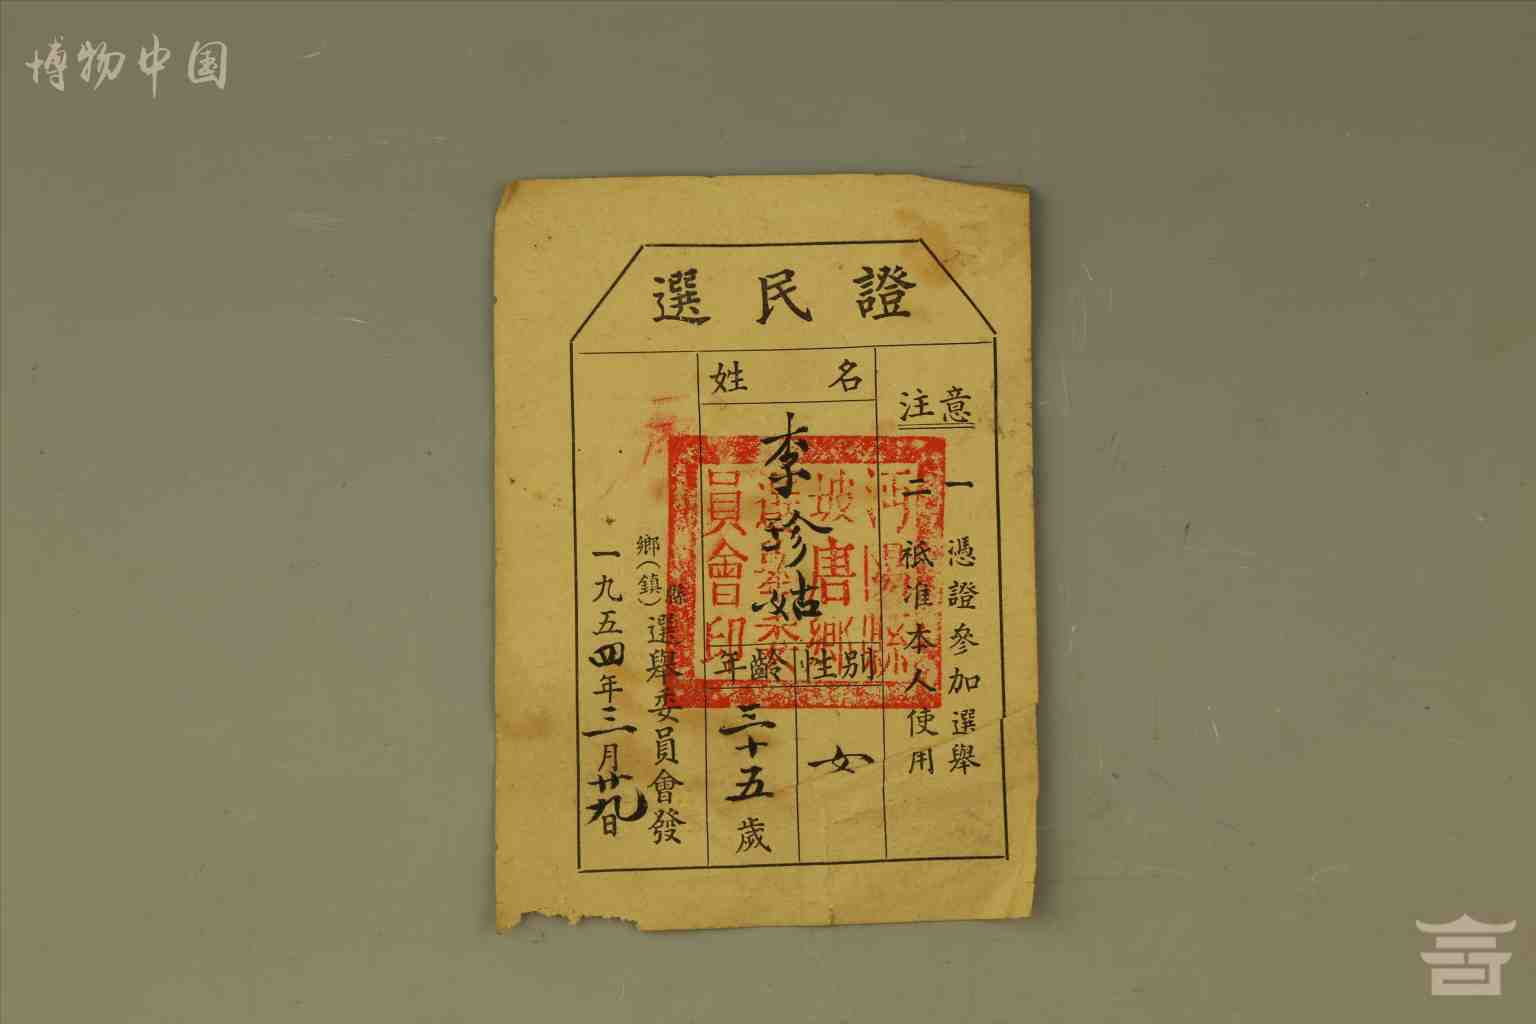 博物中国
選民證
注意
一 憑證參加選舉
二 祇准本人使用
姓名
李珍姑
性別
女
年齡
三十五歲
縣
鄉(鎮)
選舉委員會發
一九五四年三月廿九日
沔陽縣
坡唐鄉
選舉委
員會印